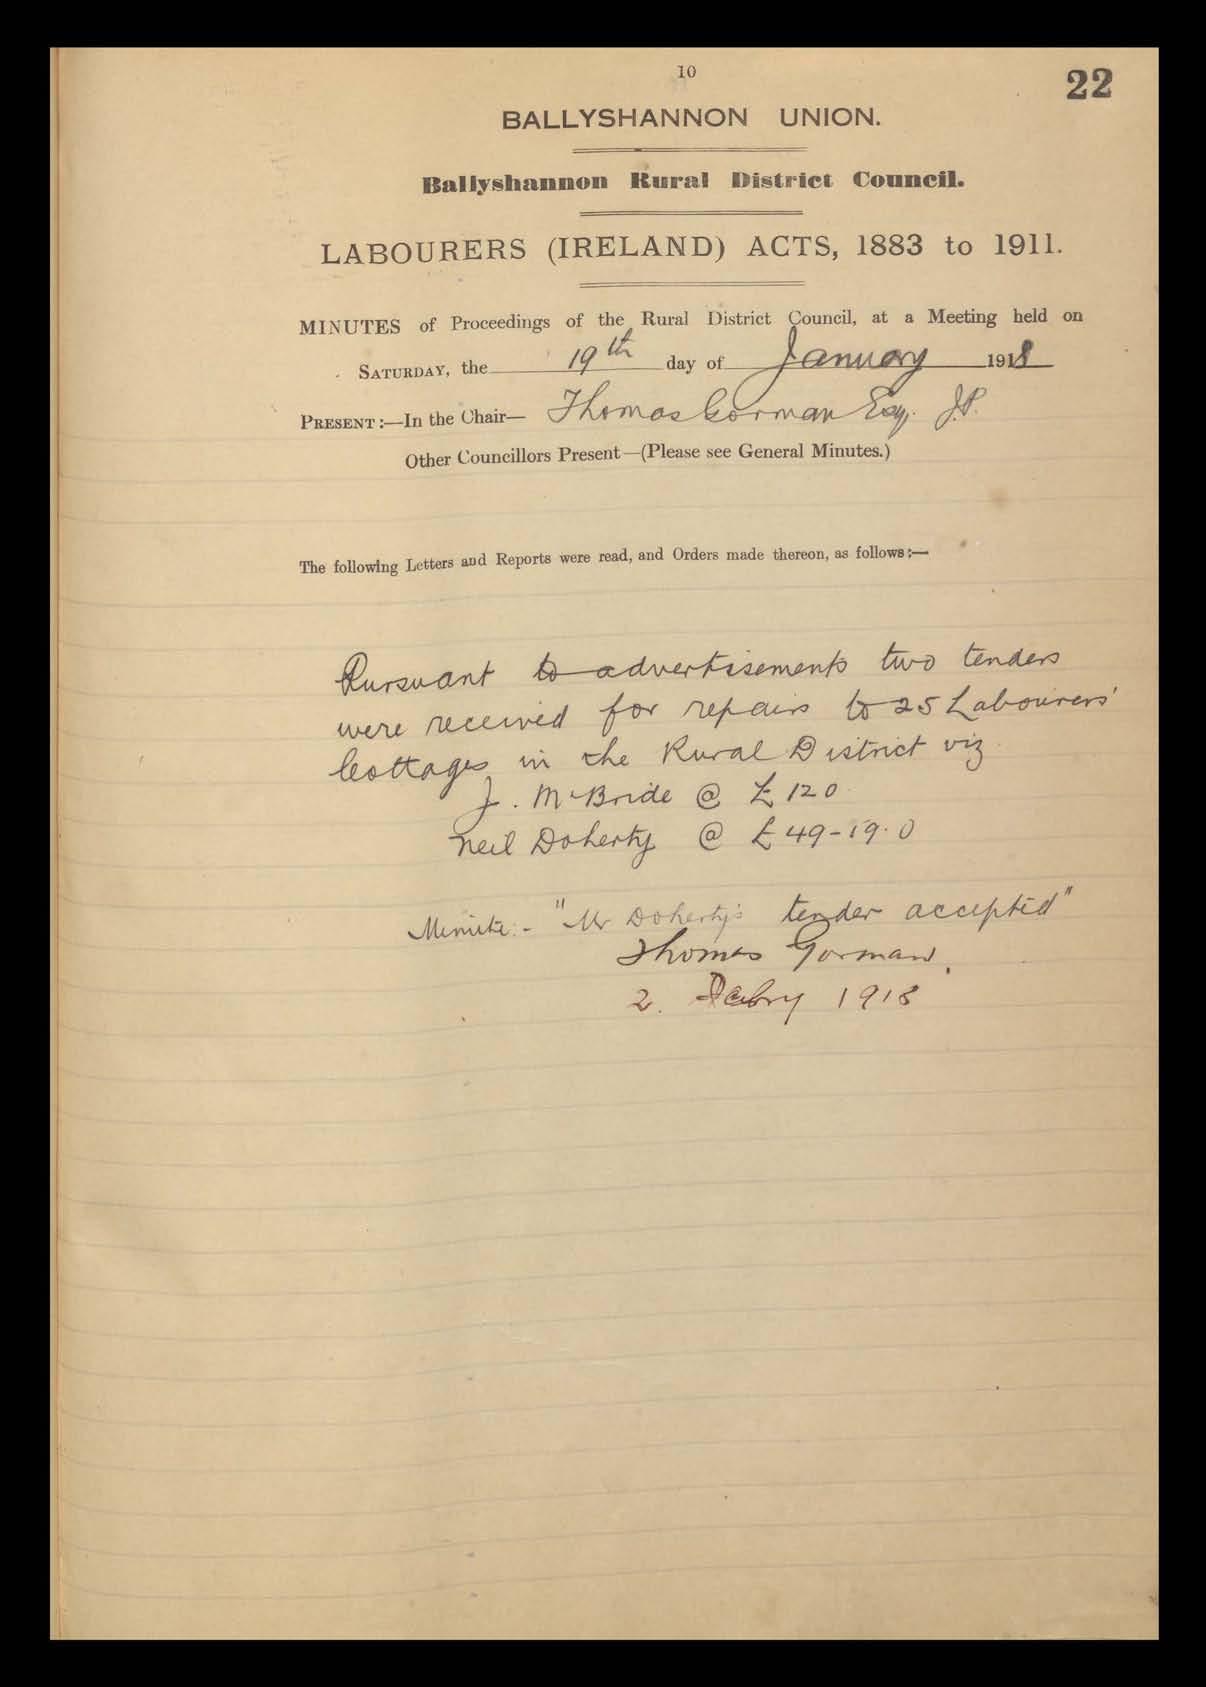 10
22
BALLYSHANNON UNION.
Ballyshannon Rural District Council.
LABOURERS (IRELAND) ACTS, 1883 to 1911.
MINUTES of Proceedings of the Rural District Council, at a Meeting held on
SATURDAY, the 19th day of January 1918
PRESENT:—In the Chair— Thomas Gorman Esq. J.P.
Other Councillors Present—(Please see General Minutes.)
The following Letters and Reports were read, and Orders made thereon, as follows:—
Pursuant to advertisements two tenders
were received for repairs to 25 Labourers'
Cottages in the Rural District viz
J. McBride @ £120
Neil Doherty @ £49-19.0
Minute:- "Mr Doherty's tender accepted"
Thomas Gorman.
2. Febry 1918